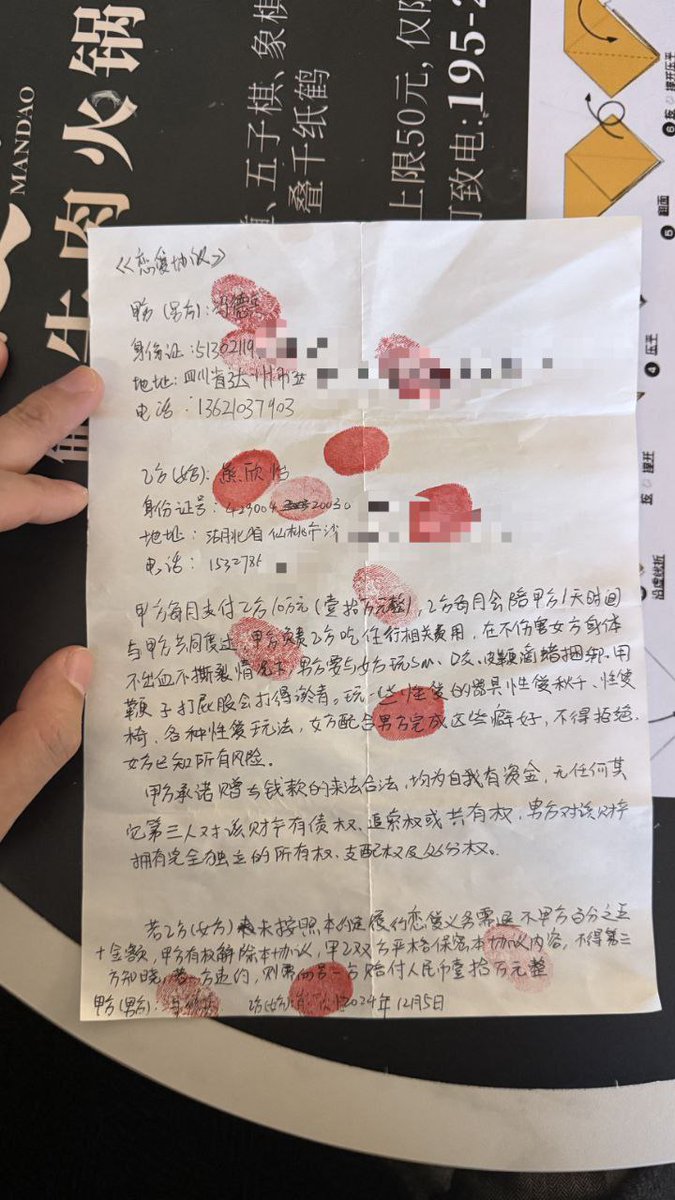 MANDAO
生肉火锅
、五子棋、象棋
叠千纸鹤
上限50元，仅限
丁致电：195-2
⑥ 压平
⑤ 翻面
④ 压平
《恋爱协议》
甲方（男方）：
身份证：51302119
地址：四川省达州市
电话：13621037903
乙方（女方）：熊欣怡
身份证号：429004 20030
地址：湖北省仙桃市沙
电话：1532786
甲方每月支付乙方10万元（壹拾万元整），乙方每月会陪甲方1天时间
与甲方共同度过，甲方负责乙方吃住行相关费用，在不伤害女方身体
不出血不撕裂情况下男方要与女方玩sm、口交、皮鞭滴蜡捆绑、用
鞭子打屁股会打得淤青。玩一些性爱的器具性爱秋千、性爱
椅、各种性爱玩法，女方配合男方完成这些癖好，不得拒绝，
女方已知所有风险。
甲方承诺赠与钱款的来法合法，均为自我有资金，无任何其
它第三人对该财产有债权、追索权或共有权，男方对该财产
拥有完全独立的所有权、支配权及处分权。
若乙方（女方）未按照本约定履行恋爱义务需退还甲方百分之五
十金额，甲方有权解除本协议，甲乙双方严格保密本协议内容，不得第三
方知晓，若一方违约，则需向另一方赔付人民币壹拾万元整
甲方（男方）： 乙方（女方）： 2024年12月5日